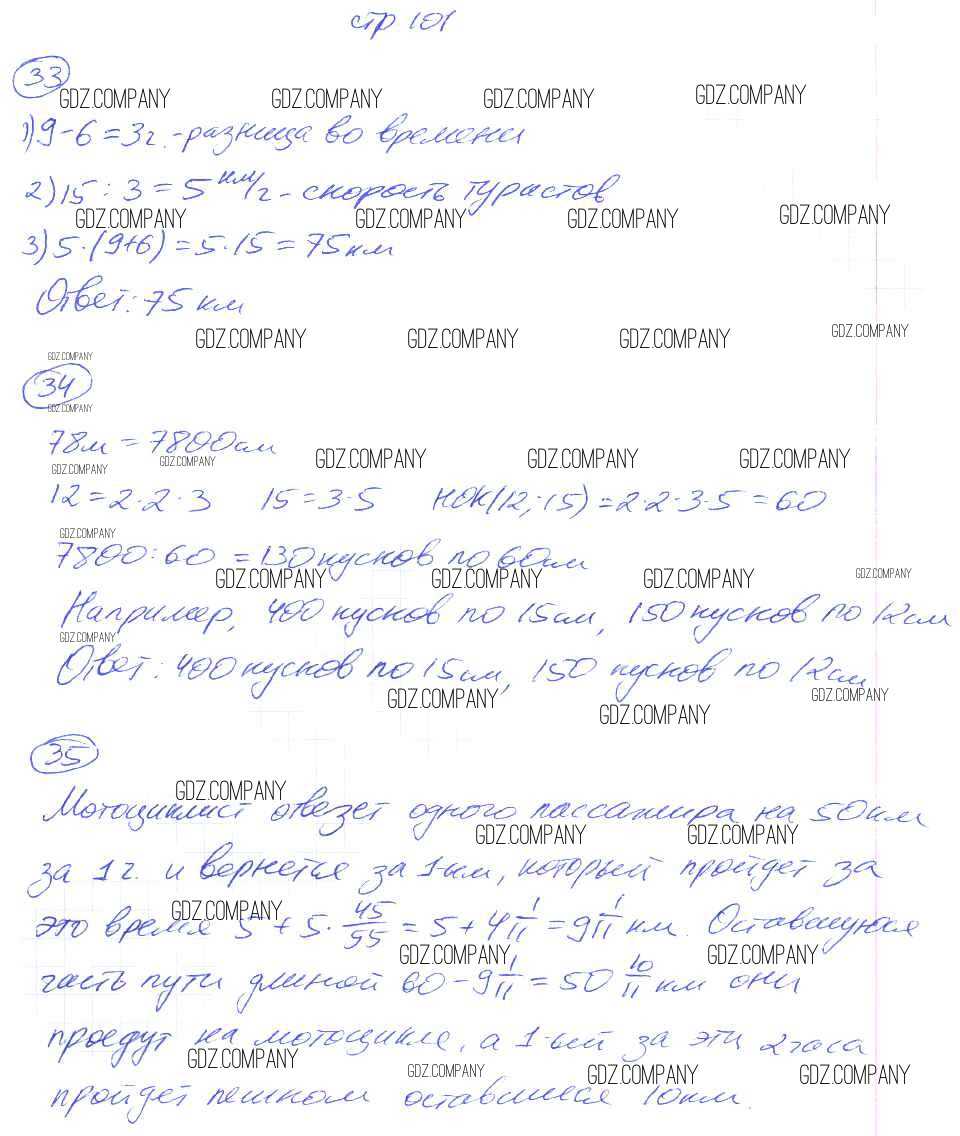 стр 101
33
GDZ.COMPANY GDZ.COMPANY GDZ.COMPANY GDZ.COMPANY
1) 9-6=3ч.-разница во времени
2) 15:3=5 км/ч-скорость туристов
GDZ.COMPANY GDZ.COMPANY GDZ.COMPANY GDZ.COMPANY
3) 5·(9+6)=5·15=75км
Ответ: 75 км
GDZ.COMPANY GDZ.COMPANY GDZ.COMPANY GDZ.COMPANY
GDZ.COMPANY
34
GDZ.COMPANY
78м = 7800см
GDZ.COMPANY GDZ.COMPANY GDZ.COMPANY GDZ.COMPANY GDZ.COMPANY
12=2·2·3 15=3·5 НОК(12;15)=2·2·3·5=60
GDZ.COMPANY
7800:60=130кусков по 60см
GDZ.COMPANY GDZ.COMPANY GDZ.COMPANY GDZ.COMPANY
Например, 400 кусков по 15см, 150 кусков по 12см
GDZ.COMPANY
Ответ: 400 кусков по 15см, 150 кусков по 12см
GDZ.COMPANY GDZ.COMPANY GDZ.COMPANY
35
GDZ.COMPANY
Мотоциклист отвезет одного пассажира на 50км
GDZ.COMPANY GDZ.COMPANY
за 1ч. и вернется за 1-км, который пройдет за
GDZ.COMPANY
это время 5+5·45/55=5+4 1/11=9 1/11 км. Оставшуюся
GDZ.COMPANY GDZ.COMPANY
часть пути длиной 60-9 1/11=50 10/11 км они
проедут на мотоцикле, а 1-ый за эти 2 часа
GDZ.COMPANY GDZ.COMPANY GDZ.COMPANY GDZ.COMPANY
пройдет пешком оставшиеся 10км.